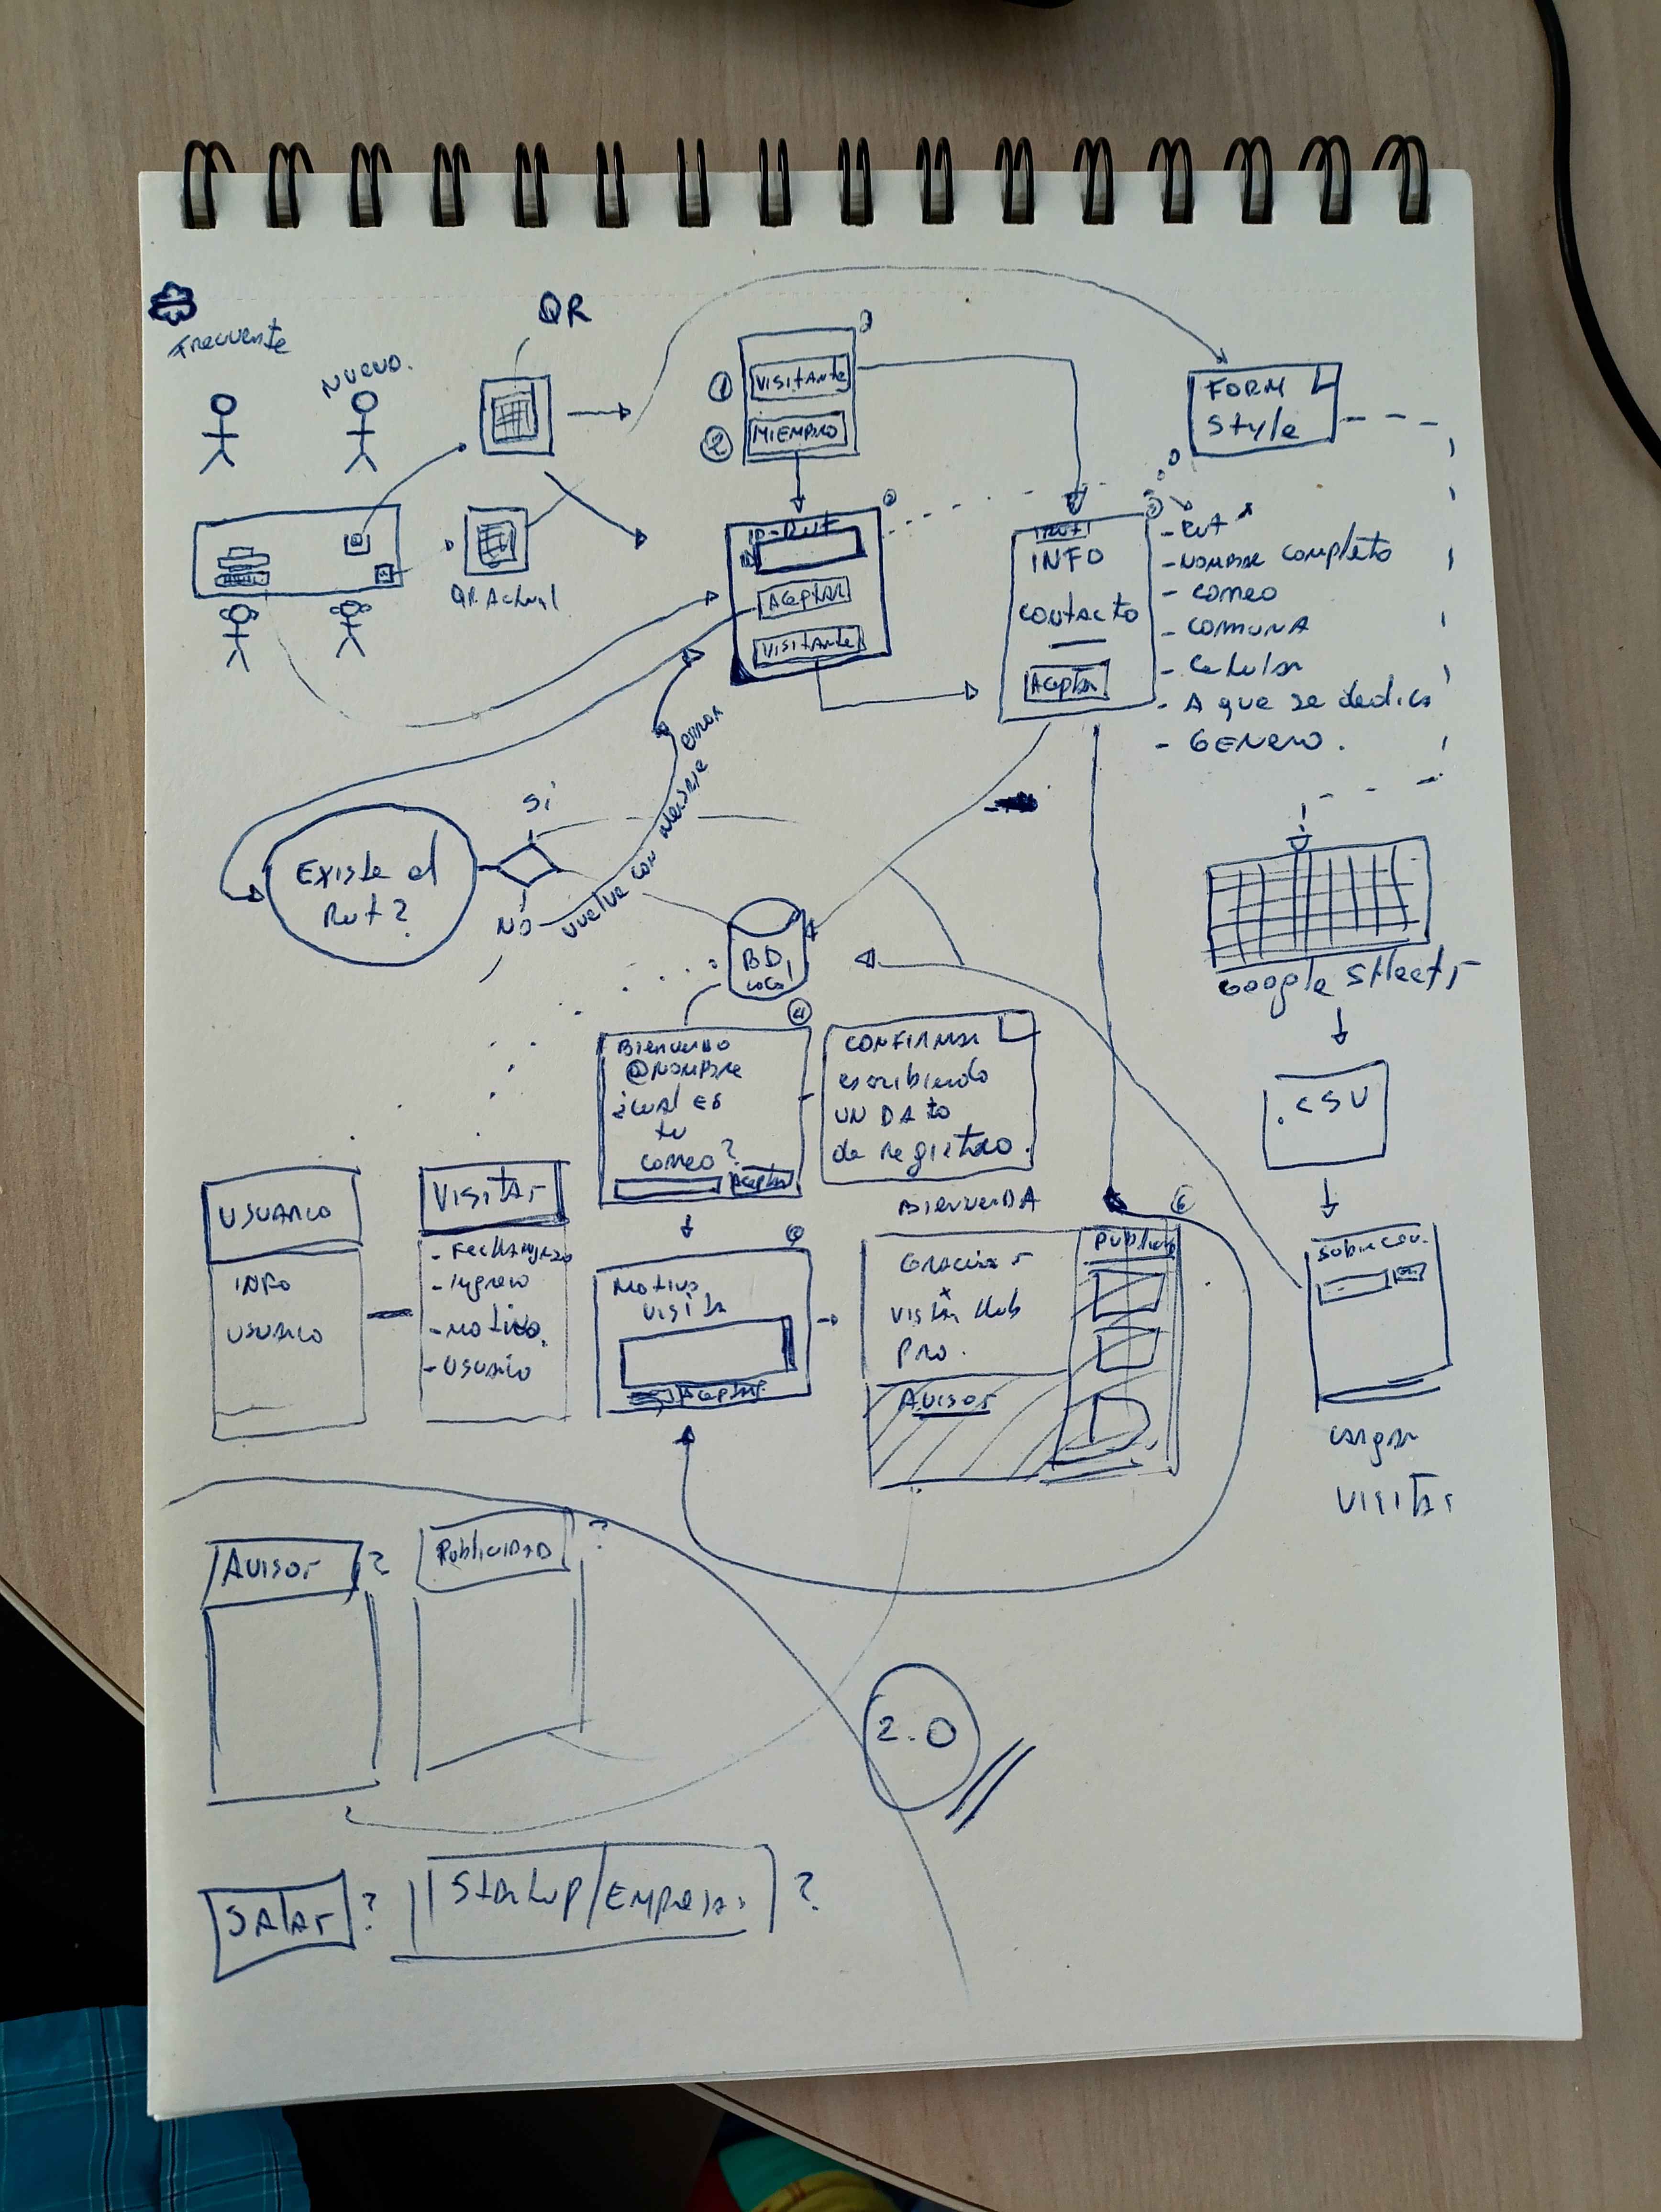 Frecuente
Nuevo.
QR
QR Actual
1
VISITANTE
2
MIEMBRO
FORM
Style
ID-Rut
Aceptar
Visitante
Rut
INFO
contacto
Aceptar
- Rut *
- Nombre completo
- Correo
- COMUNA
- Celular
- A que se dedica
- GENERO.
Existe el
Rut?
Si
NO
vuelve con mensaje error
BD
Local
Google Sheets
.CSV
4
Bienvenido
@Nombre
¿Cual es
tu
correo?
Aceptar
CONFIRMAR
escribiendo
UN DATO
de registro.
USUARIO
INFO
USUARIO
VISITAS
- Ingreso
- Motivo.
- Usuario
5
Motivo
Visita
Aceptar
BIENVENIDA
6
Gracias
x
Visitar Hub
Pro.
AVISOS
Subir CSV.
Cargar
VISITAS
AVISOS ?
Publicidad ?
2.0
SALAS ?
Startup/Empresas ?